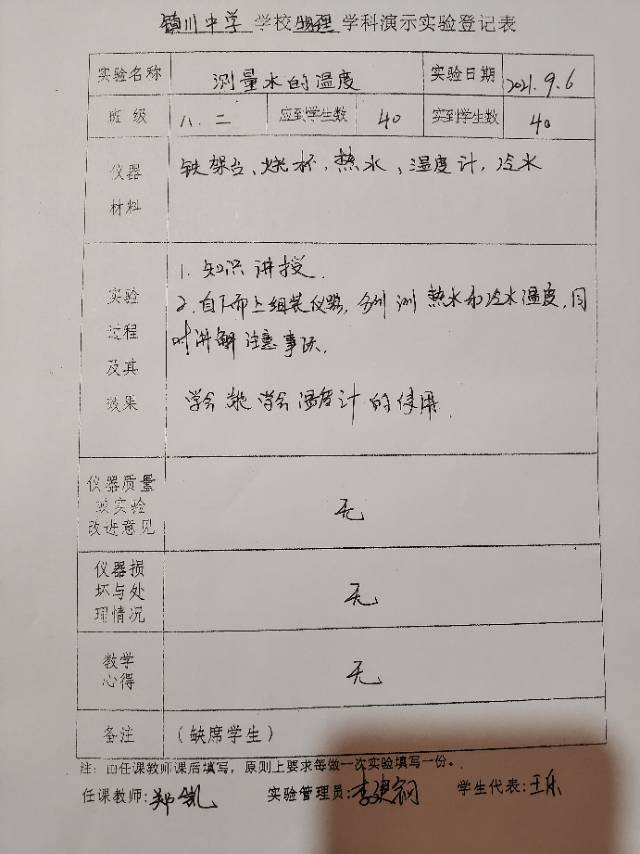 镇川中学 学校 物理 学科演示实验登记表
实验名称 测量水的温度 实验日期 2021.9.6
班 级 八.二 应到学生数 40 实到学生数 40
仪器 铁架台、烧杯,热水、温度计,冷水
材料
1. 知识讲授.
实验 2.自下而上组装仪器,分别测热水和冷水温度,同
过程 时讲解注意事项.
及其
效果 学会能学会温度计的使用.
仪器质量
或实验 无
改进意见
仪器损
坏与处 无
理情况
教学 无
心得
备注 (缺席学生)
注:由任课教师课后填写,原则上要求每做一次实验填写一份。
任课教师:郑凯 实验管理员:李 学生代表:王乐